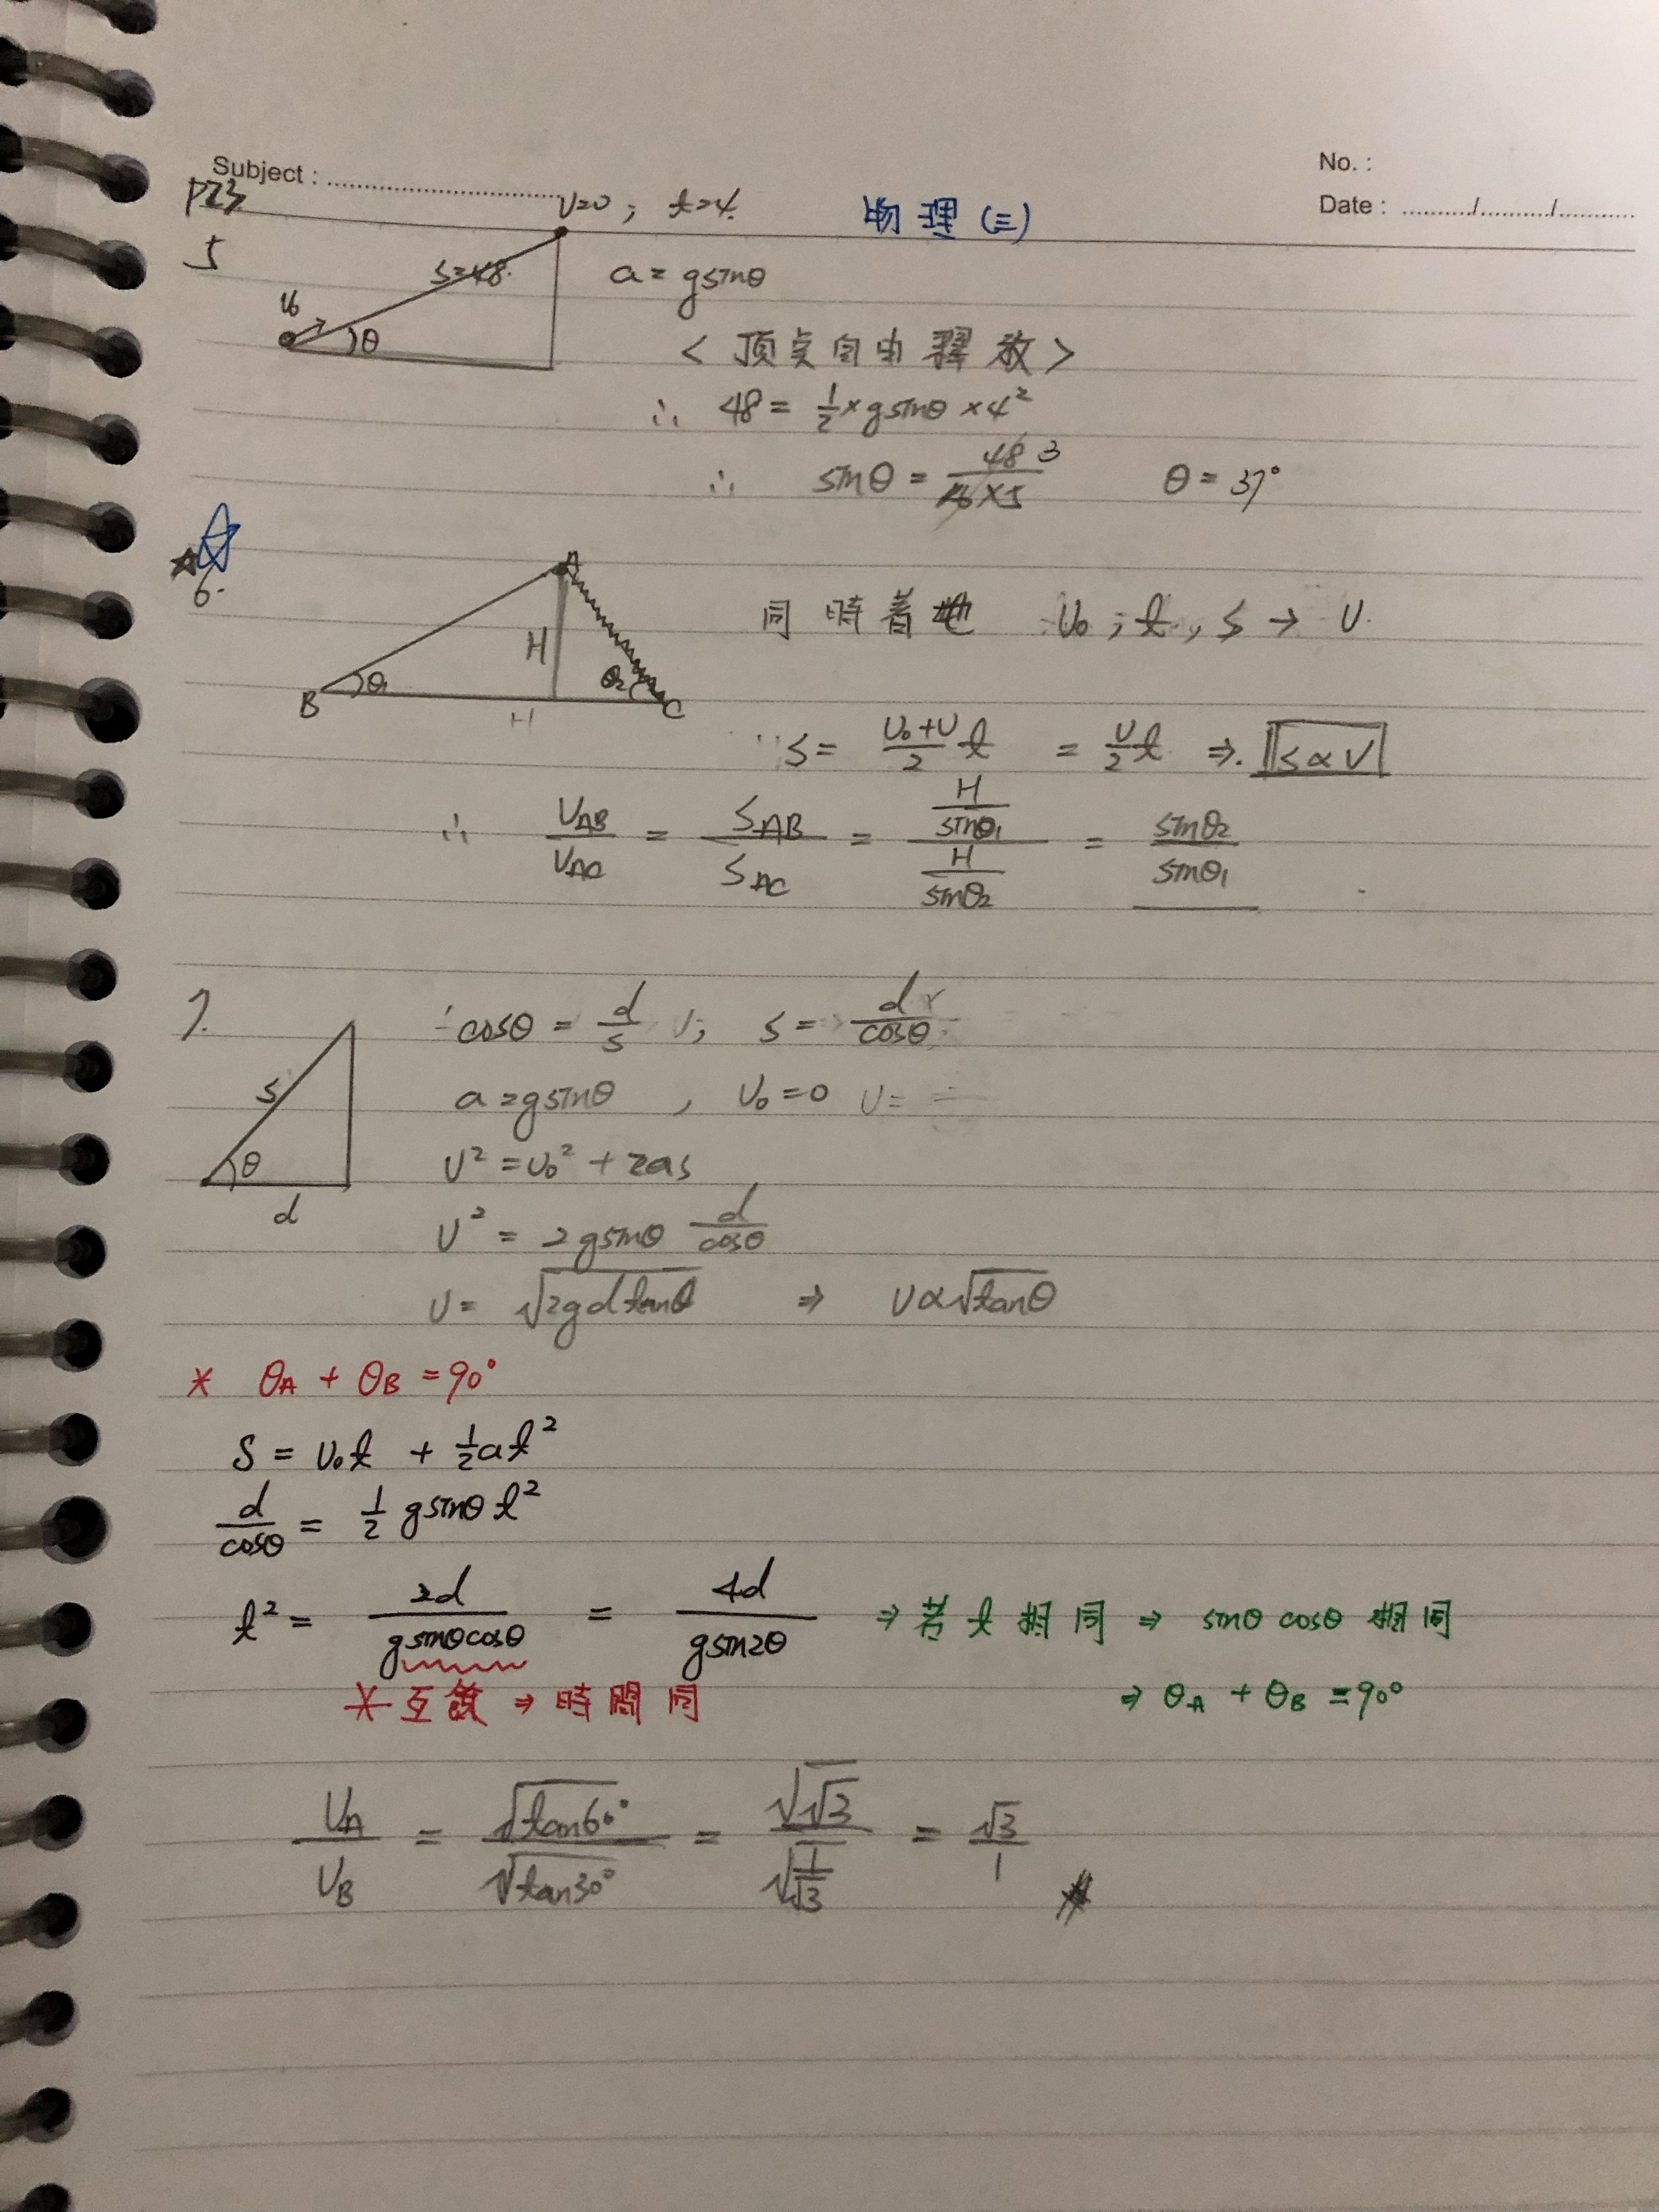 Subject :
No. :
Date : / /
P23
v=0 ; t=4.
物理(三)
5
S=48.
v₀
θ
a = gsinθ
<顶点自由釋放>
∴ 48 = 1/2 × gsinθ × 4²
∴ sinθ = 48 3 / 16×5 θ = 37°
6.
A
H
θ₁
θ₂
B
H
C
同時着地 v₀ ; t , s → v
∵ s = (v₀+v)/2 t = v/2 t ⇒. s ∝ v
∴ v_AB / v_AC = S_AB / S_AC = (H/sinθ₁) / (H/sinθ₂) = sinθ₂ / sinθ₁
7.
s
θ
d
cosθ = d/s ; s = d/cosθ
a = gsinθ , v₀ = 0 v =
v² = v₀² + 2as
v² = 2gsinθ d/cosθ
v = √(2gdtanθ) ⇒ v ∝ √tanθ
* θ_A + θ_B = 90°
S = v₀t + 1/2 at²
d/cosθ = 1/2 gsinθ t²
t² = 2d / gsinθcosθ = 4d / gsin2θ ⇒ 若 t 相同 ⇒ sinθ cosθ 相同
* 互餘 ⇒ 時間同
⇒ θ_A + θ_B = 90°
v_A / v_B = √tan60° / √tan30° = √√3 / √(1/√3) = √3 / 1